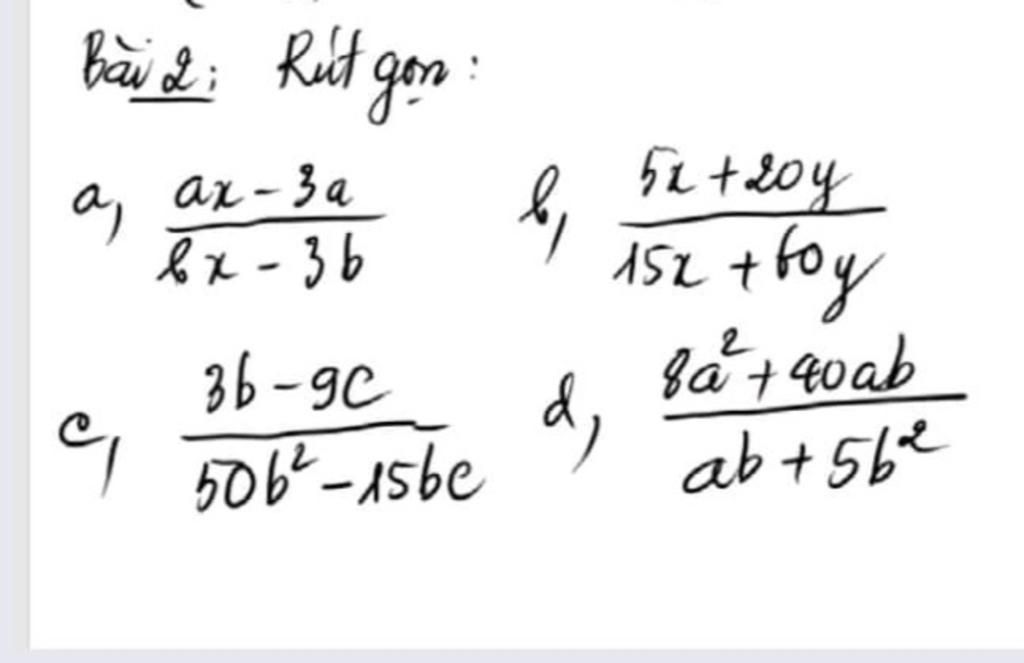 Bài 2: Rút gọn:
a, (ax - 3a)/(bx - 3b) b, (5x + 20y)/(15x + 60y)
c, (3b - 9c)/(50b² - 15bc) d, (8a² + 40ab)/(ab + 5b²)